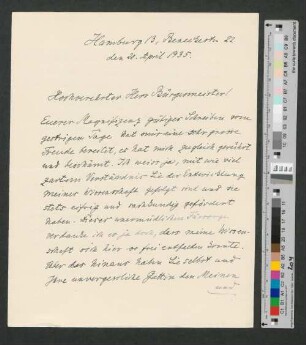 Hamburg 13, Beneckestr. 22
den 21. April 1935.
Hochverehrter Herr Bürgermeister!
Euerer Magnifizenz gütiges Schreiben vom
gestrigen Tage hat mir eine sehr grosse
Freude bereitet, es hat mich zugleich gerührt
und beschämt. Ich weiss ja, mit wie viel
zartem Verständnis Sie der Entwicklung
meiner Wissenschaft gefolgt sind und sie
stets eifrig und gefördert
haben. Dieser unermüdlichen Fürsorge
verdanke ich es ja doch, dass meine Wissen-
schaft sich hier so frei entfalten konnte.
Über das hinaus haben Sie selbst und
Ihre unvergessliche Gattin den Meinen